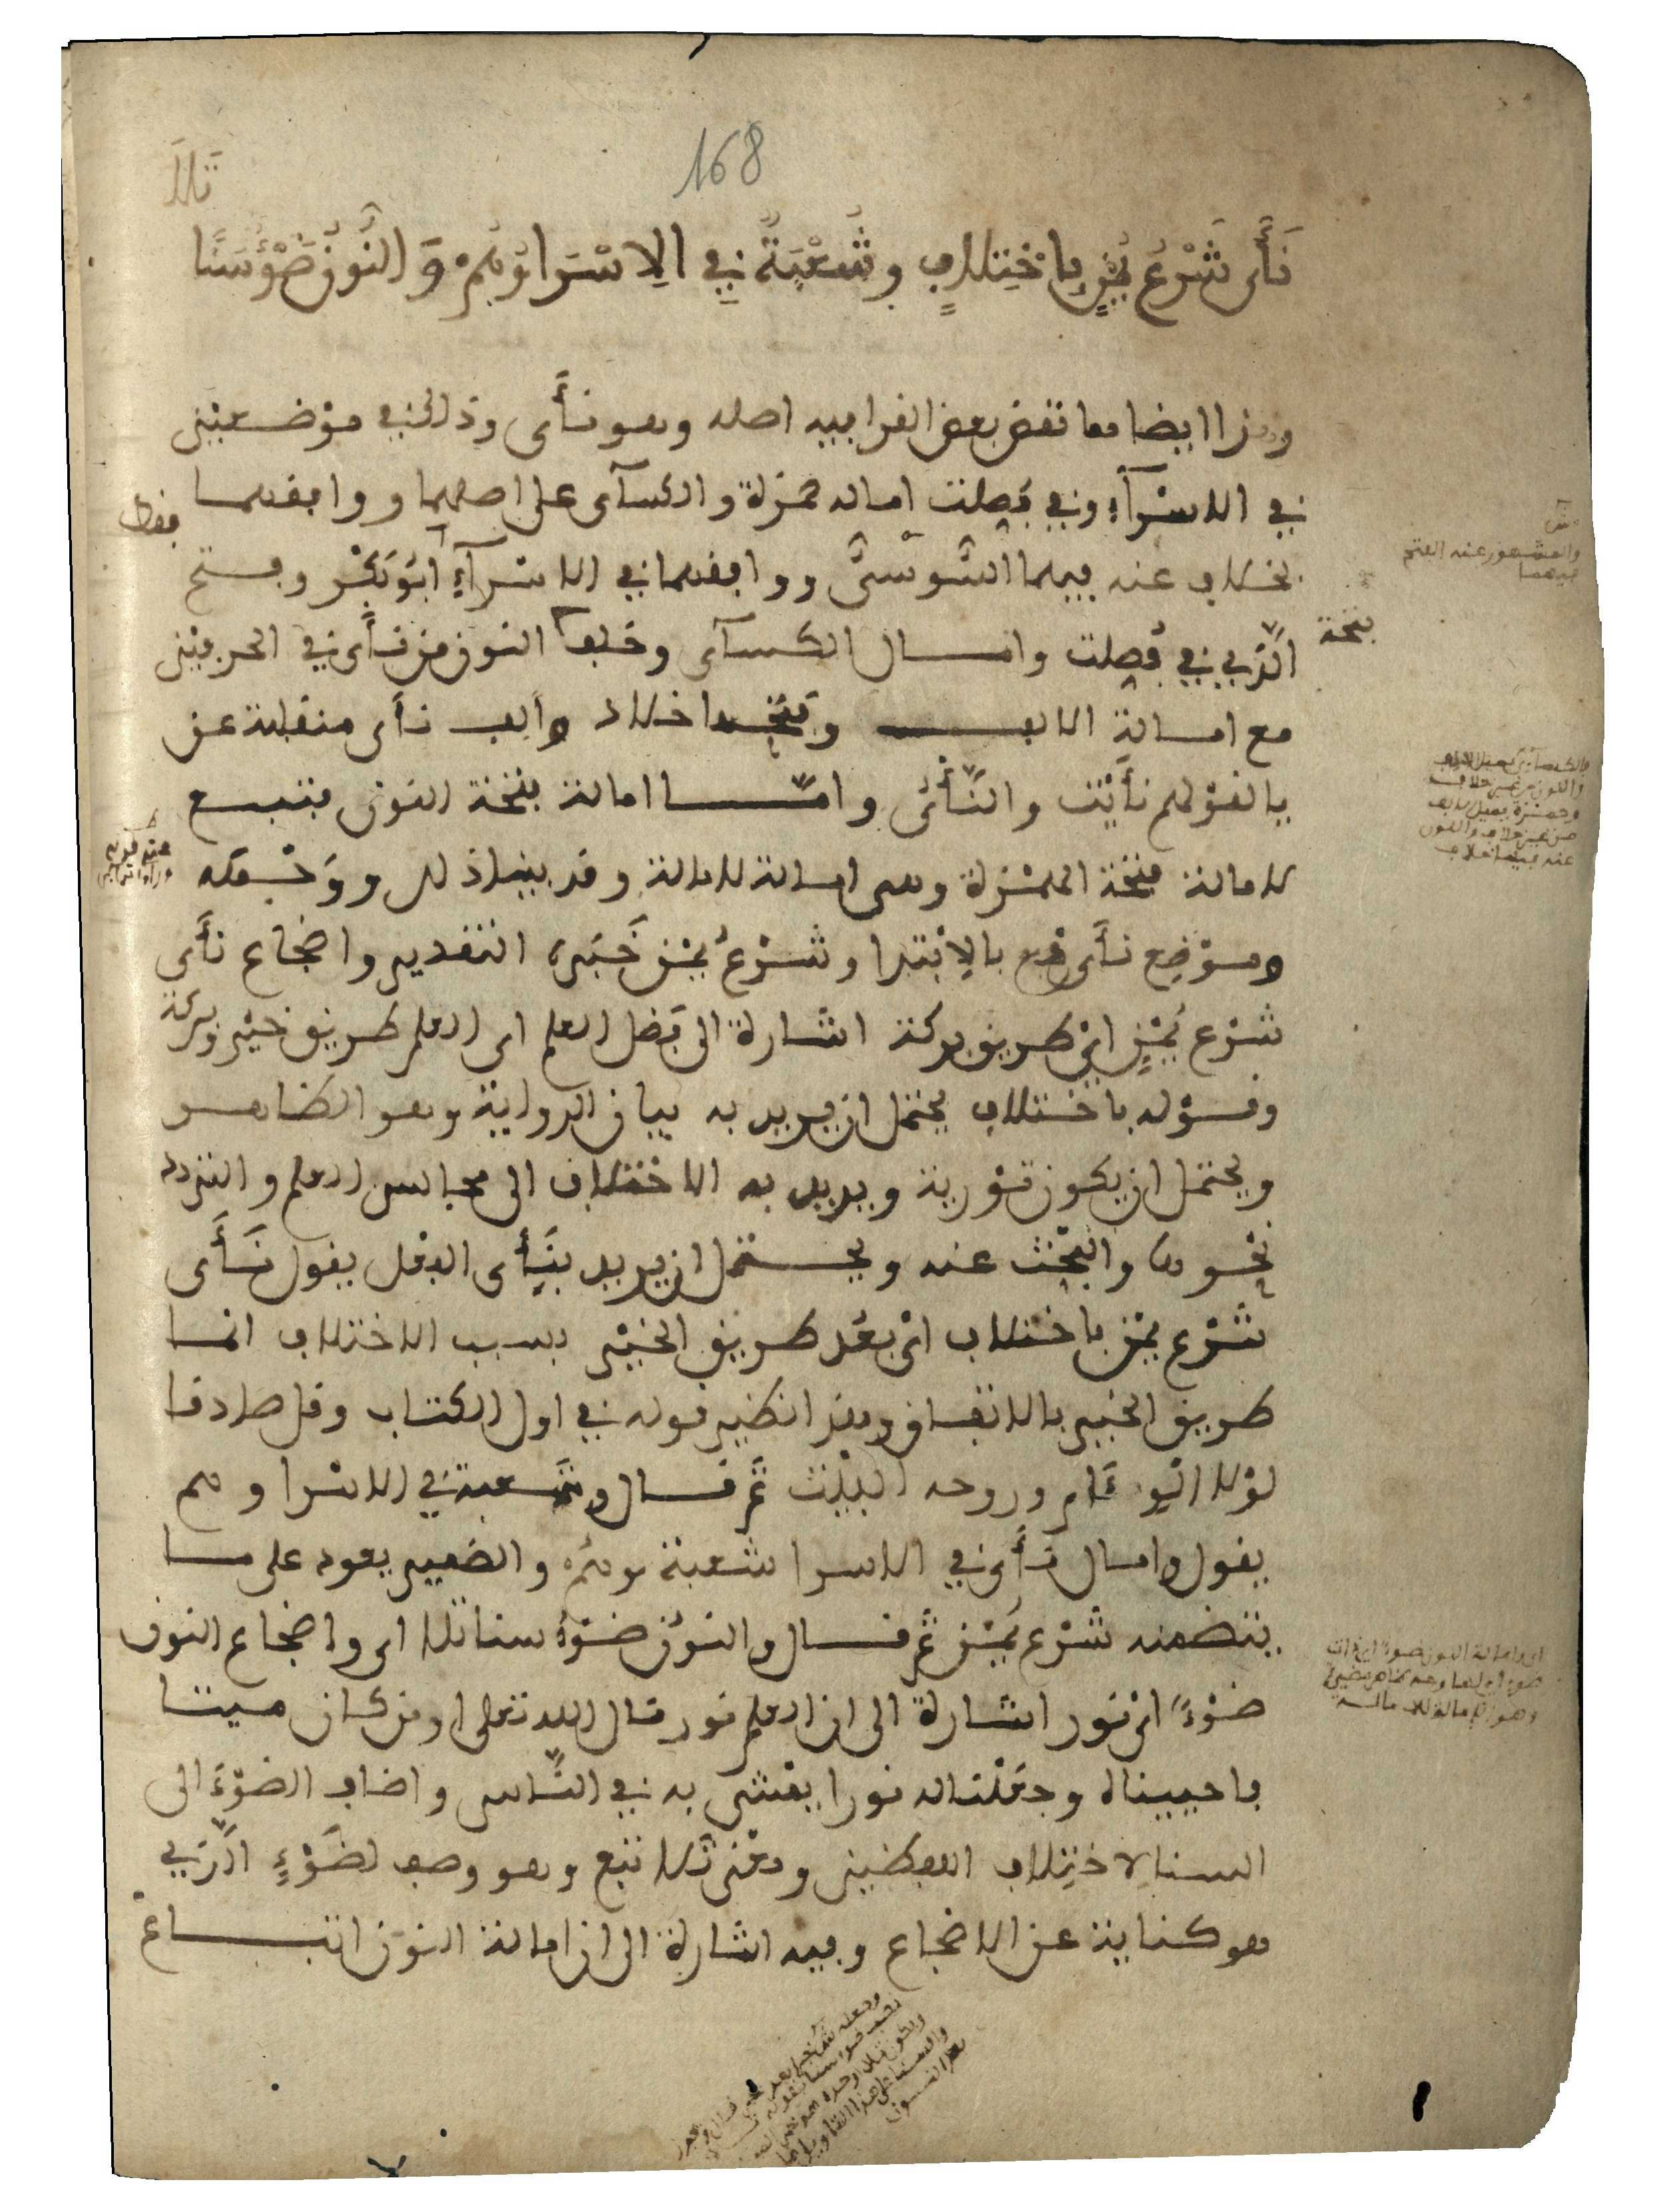 168
تَلَا
نَأَى شَرْعُ يُمْنٍ بِاخْتِلَافٍ وشُعْبَةٌ فِي الِاسْرَا وَهُمْ وَالنُّونُ ضَوْءُ سَنًا
وهذا ايضا مما نقض بعض القرا فيه اصله وهو نأى وذلك في موضعين
في الاسرآء وفي فصلت اماله حمزة والكسآى على اصلهما ووافقهما
بخلاف عنه فيهما السُّوسىُّ ووافقهما في الاسرآءِ ابُو بَكْر وفتح
الَّذِي في فُصلت وامال الكسآى وخلف النون من نأى في الحرفين
مع امالة الالف وفتحها خلاد والف نأى منقلبة عن
يا لقولهم نأَيْت والنَّأْى وامَّا امالة فتحة النون فتبع
لامالة فتحة الهمزة وهى امالة للامالة وقد بينا ذلك ووجهه
وموْضِع نأى رفع بالِابْتدا وشرْعُ يمْن خَبَره التقدير واضجاع نأى
شرْع يُمْنٍ اىْ طريق بركة اشارة الى فضل العلم اى العلم طريق خيْر وبركة
وقوْله باختلاف يحتمل ان يريد به بيان الرواية وهو الظاهر
ويحتمل ان يكون توْرية ويريد به الاختلاف الى مجالس العلم والتردد
نحوها والبحْث عنه ويحتمل ان يريد بنَأى الفعل يقول نَأَى
شرْع يمْن باختلاف اىْ بعُد طريق الخيْر بسبب الاختلاف انما
طريق الخير بالاتفاق وهذا نظير قوله في اول الكتاب وقل صادقا
لوْلا الوئام وروحه البيْت ثم قال وشعبة في الاسرا وهم
يقول وامال نأى في الاسرا شعبة وهُم والضمير يعود على ما
يتضمنه شرْع يُمْن ثم قال والنون ضوْءُ سنا تلا اى واضجاع النون
ضوْءُ اىْ نور اشارة الى ان العلم نور قال الله تعلى اومن كان ميتا
فاحييناه وجعَلْنا له نورا يمْشى به في النَّاس واضاف الضوْءَ الى
السنا لاختِلاف اللفظين ومعْنى تَلا تبع وهو وصف لضَوْءٍ الَّذِي
هو كناية عن الاضجاع وفيه اشارة الى ان امالة النون اتباع
فتحة
والمشهور عنه الفتح
فيهما
فالكسآى يميل الالف
والنون من غير خلاف
وحمزة يميل الالف
من غير خلاف والنون
عنه فيها خلاف
اى وامالة النون ضوء اى ذات
وهو امالة للامالة